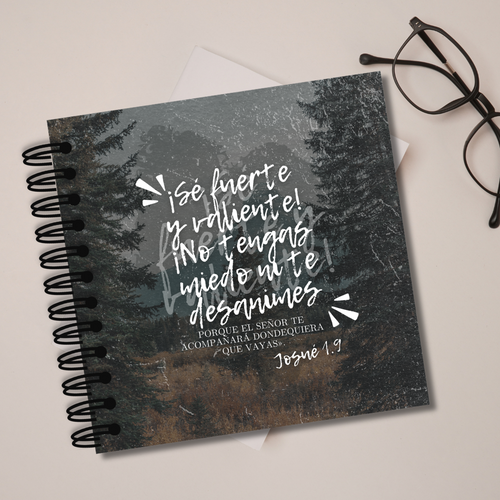 ¡Sé fuerte
y valiente!
¡No tengas
miedo ni te
desanimes
PORQUE EL SEÑOR TE
ACOMPAÑARÁ DONDEQUIERA
QUE VAYAS».
Josué 1.9